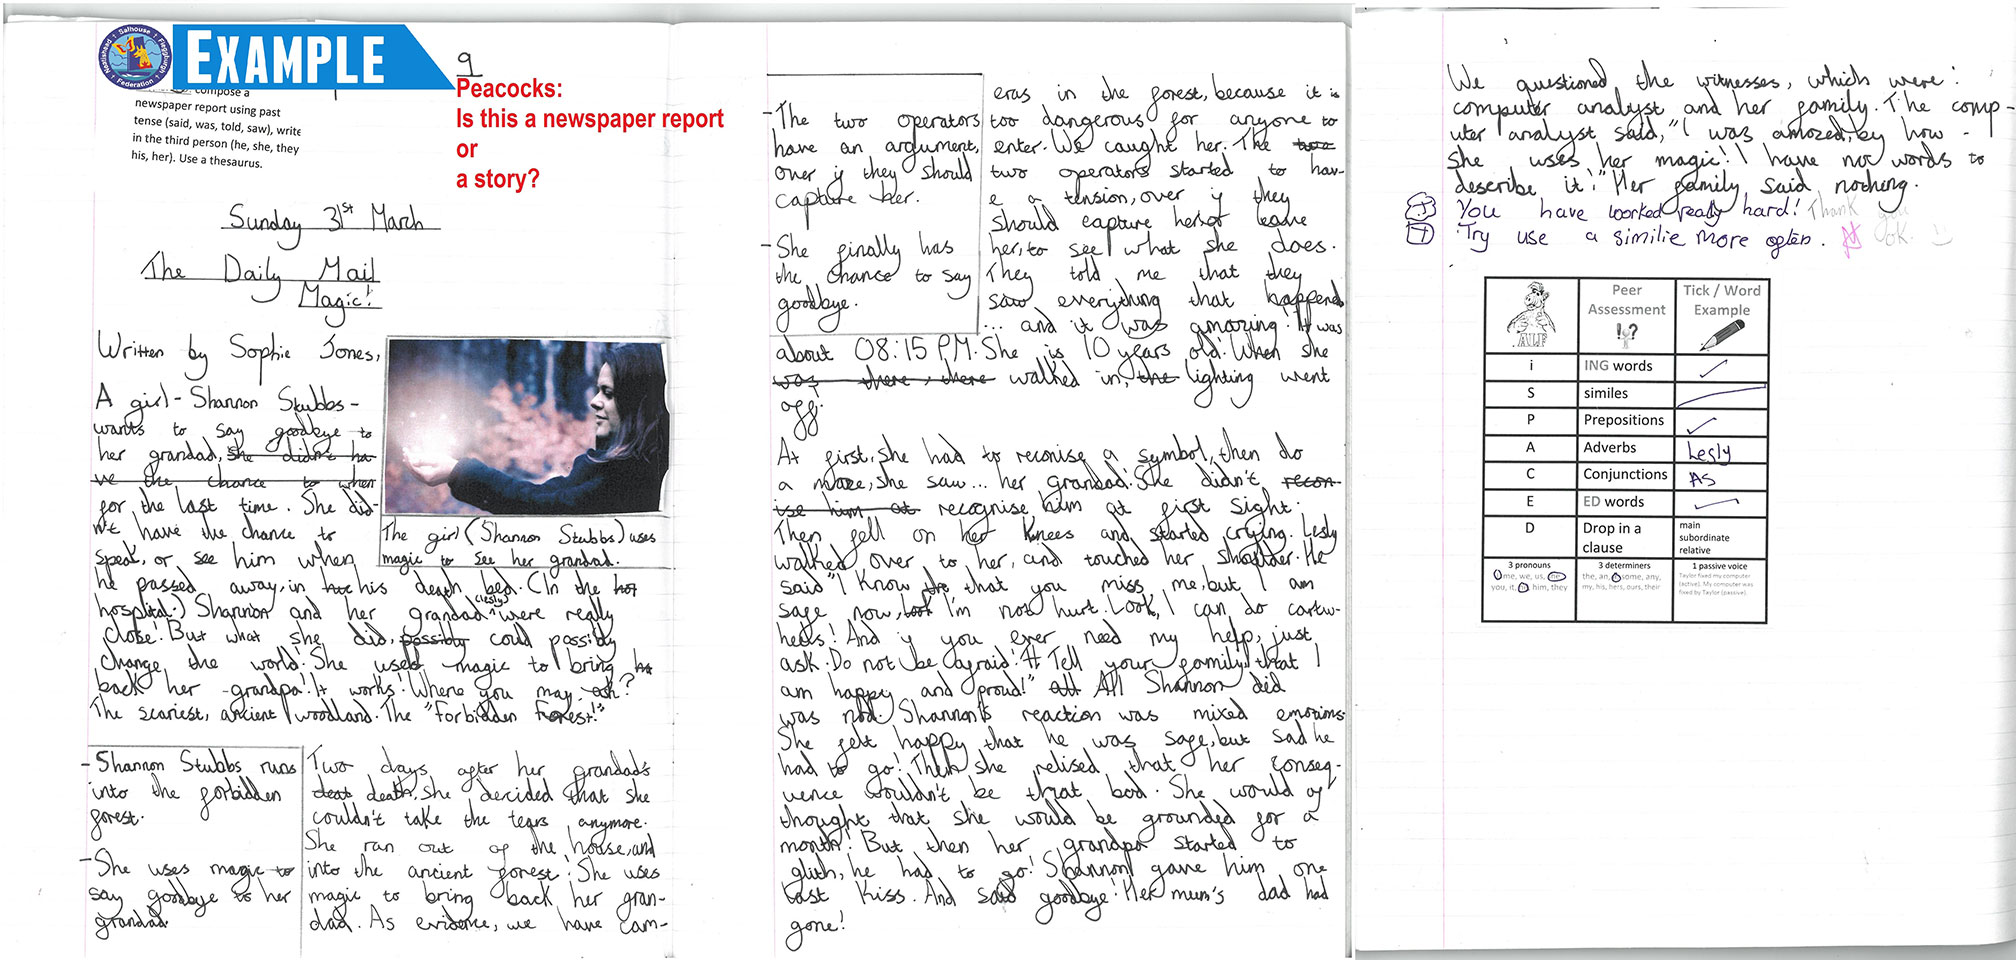 EXAMPLE
Nethersheard Salhouse Fleggburgh Federation
compose a
newspaper report using past
tense (said, was, told, saw), write
in the third person (he, she, they
his, her). Use a thesaurus.
9
Peacocks:
Is this a newspaper report
or
a story?
Sunday 31st March
The Daily Mail
Magic!
Written by Sophie Jones,
A girl - Shannon Stubbs -
wants to say goodbye to
her grandad, she didn't ha-
ve the chance to when
for the last time. She did-
n't have the chance to
speak, or see him when
he passed away, in his death bed. (In the
hospital.) Shannon and her grandad (Lesly) were really
close. But what she did, possibly could possibly
change, the world! She used magic to bring
back her grandpa! It works! Where you may ask?
The scariest, ancient woodland. The "forbidden forest!"
The girl (Shannon Stubbs) uses
magic to see her grandad.
- Shannon Stubbs runs
into the forbidden
forest.
- She uses magic to
say goodbye to her
grandad.
Two days after her grandad's
death, she decided that she
couldn't take the tears anymore.
She ran out of the house, and
into the ancient forest! She uses
magic to bring back her gran-
dad. As evidence, we have cam-
- The two operators
have an argument,
over if they should
capture her.
- She finally has
the chance to say
goodbye.
eras in the forest, because it is
too dangerous for anyone to
enter. We caught her. The two
two operators started to hav-
e a tension, over if they
should capture her, or leave
her, to see what she does.
They told me that they
saw everything that happened
... and it was amazing! It was
about 08:15 PM. She is 10 years old! When she
was there, there walked in, the lighting went
off.
At first, she had to reconise a symbol, then do
a maze, she saw... her grandad! She didn't recon-
ise him, at recognise him at first sight.
Then fell on her knees and started crying. Lesly
walked over to her, and touched her shoulder. He
said "I know that you miss me, but I am
safe now, I'm not hurt. Look, I can do cartw-
heels! And if you ever need my help, just
ask. Do not be afraid! Tell your family that I
am happy and proud!" All Shannon did
was nod. Shannon's reaction was mixed emotions.
She felt happy that he was safe, but sad he
had to go! Then she relised that her conseq-
uence wouldn't be that bad. She would of
thought that she would be grounded for a
month! But then her grandpa started to
glith, he had to go! Shannon gave him one
last kiss. And said goodbye! Her mum's dad had
gone!
We questioned the witnesses, which were:
computer analyst and her family. The comp-
uter analyst said, "I was amazed, by how
she uses her magic! I have not words to
describe it!" Her family said nothing.
You have worked really hard! Thank you
Try use a similie more often. ok.
ALF
Peer
Assessment
!?
Tick / Word
Example
i ING words
S similes
P Prepositions
A Adverbs Lesly
C Conjunctions As
E ED words
D Drop in a
clause
main
subordinate
relative
3 pronouns
I, me, we, us, me
you, it, he, him, they
3 determiners
the, an, a, some, any,
my, his, hers, ours, their
1 passive voice
Taylor fixed my computer
(active). My computer was
fixed by Taylor (passive).